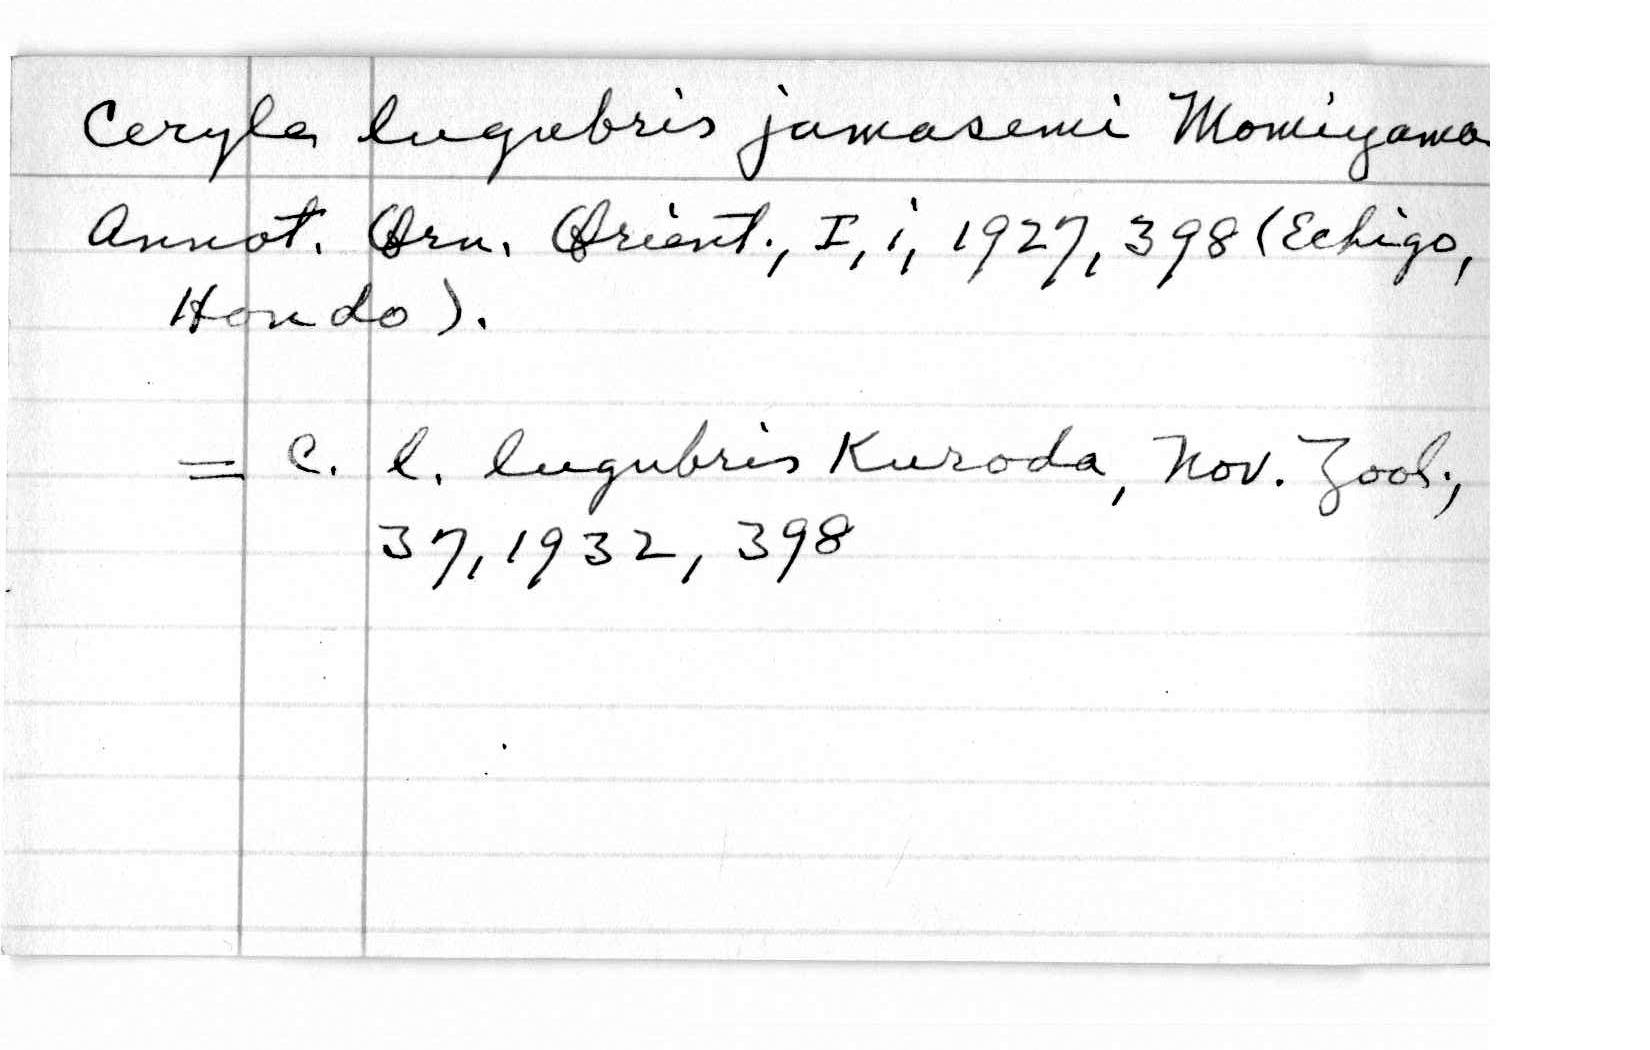 Ceryle lugubris jamasemi Momiyama
Annot. Orn. Orient., I, i, 1927, 398 (Echigo,
Hondo).
= C. l. lugubris Kuroda, Nov. Zool.,
37, 1932, 398